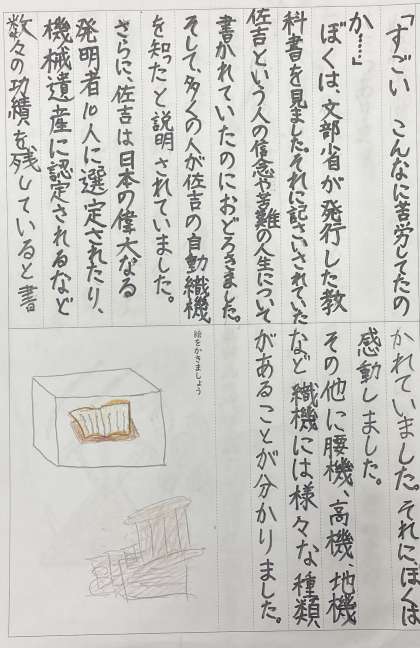 「すごい　こんなに苦労してたの
か……」
ぼくは、文部省が発行した教
科書を見ました。それに記さいされていた
佐吉という人の信念や苦難の人生について
書かれていたのにおどろきました。
そして、多くの人が佐吉の自動織機
を知ったと説明されていました。
さらに、佐吉は日本の偉大なる
発明者10人に選定されたり、
機械遺産に認定されるなど
数々の功績を残していると書
かれていました。それに、ぼくは
感動しました。
その他に腰機、高機、地機
など織機には様々な種類
があることが分かりました。
絵をかきましょう